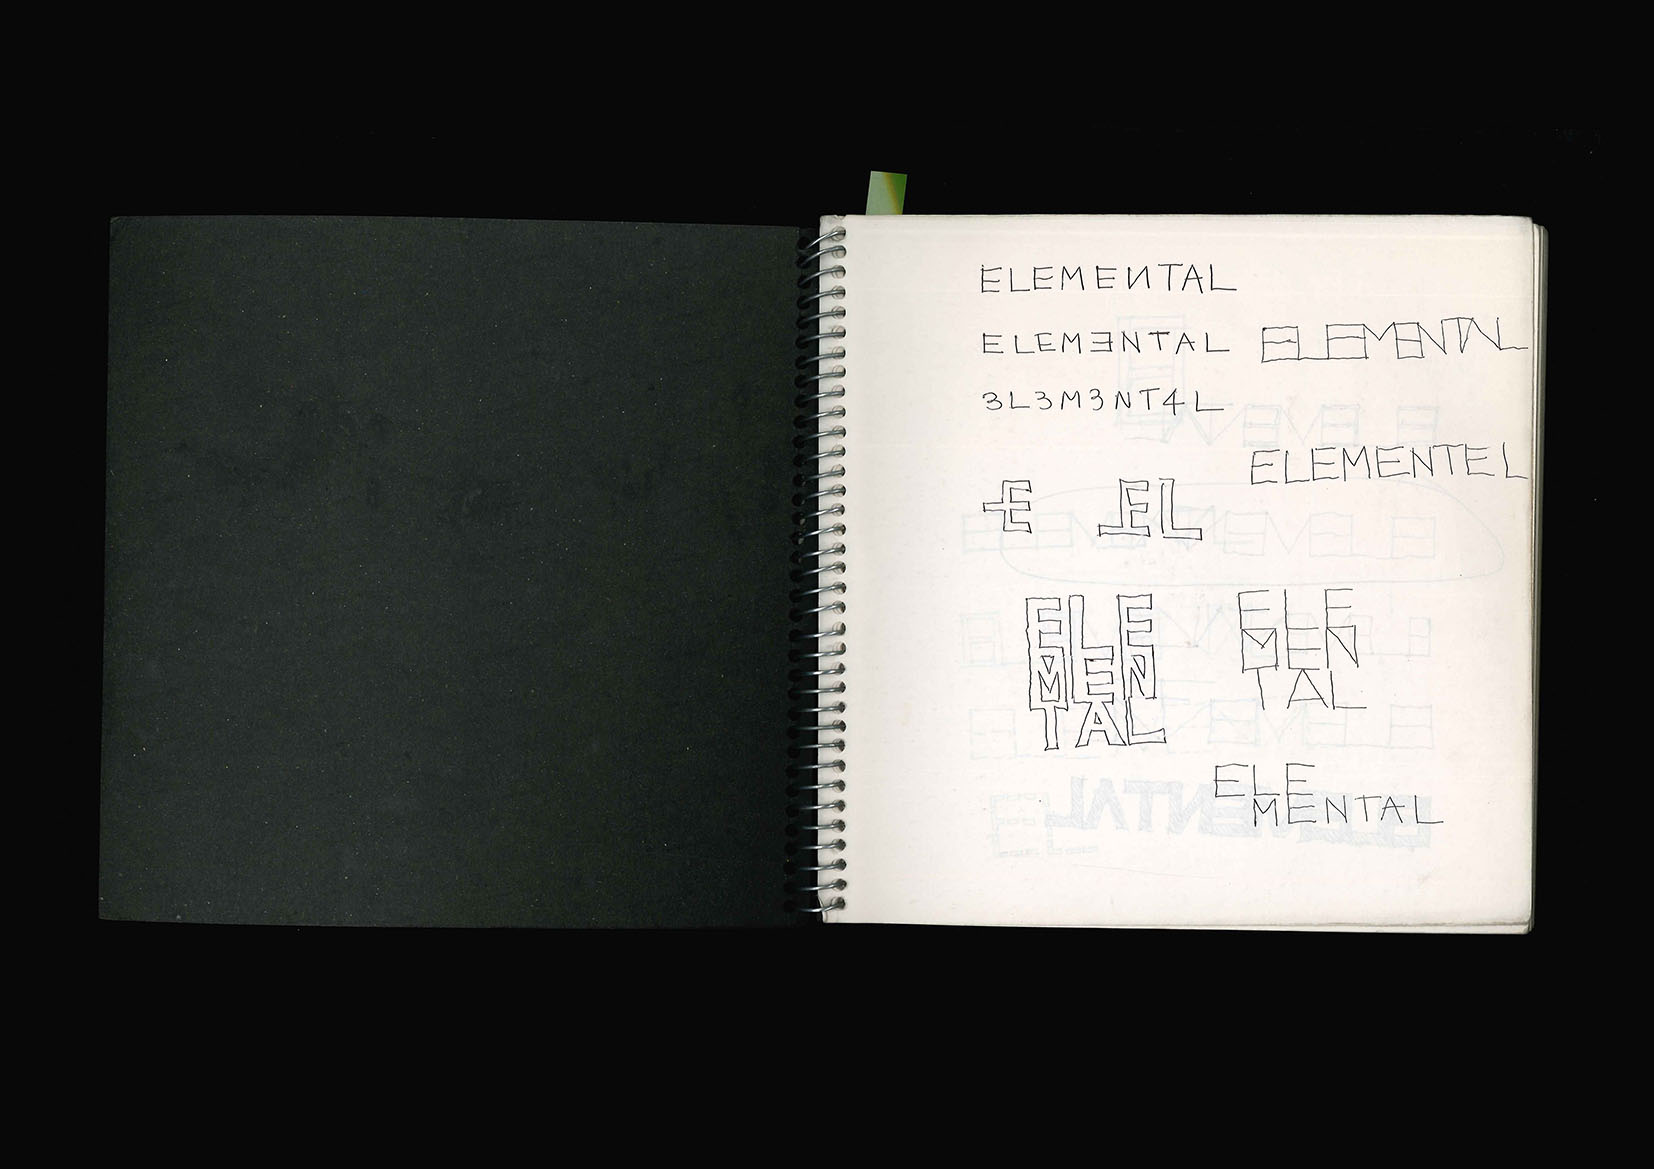 ELEMEИTAL
ELEMƎNTAL ELEMENTAL
3L3M3NT4L
ELEMENTEL
E EL
ELE
MEN
TAL
ELE
MEN
TAL
ELE
MENTAL